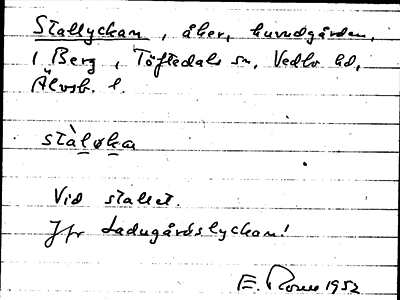 Stallyckan, åker, huvudgården,
i Berg, Töftedals sn, Vedbo hd,
Älvsb. l.
stàloka
Vid stallet.
Jfr Ladugårdslyckan!
E. 1952